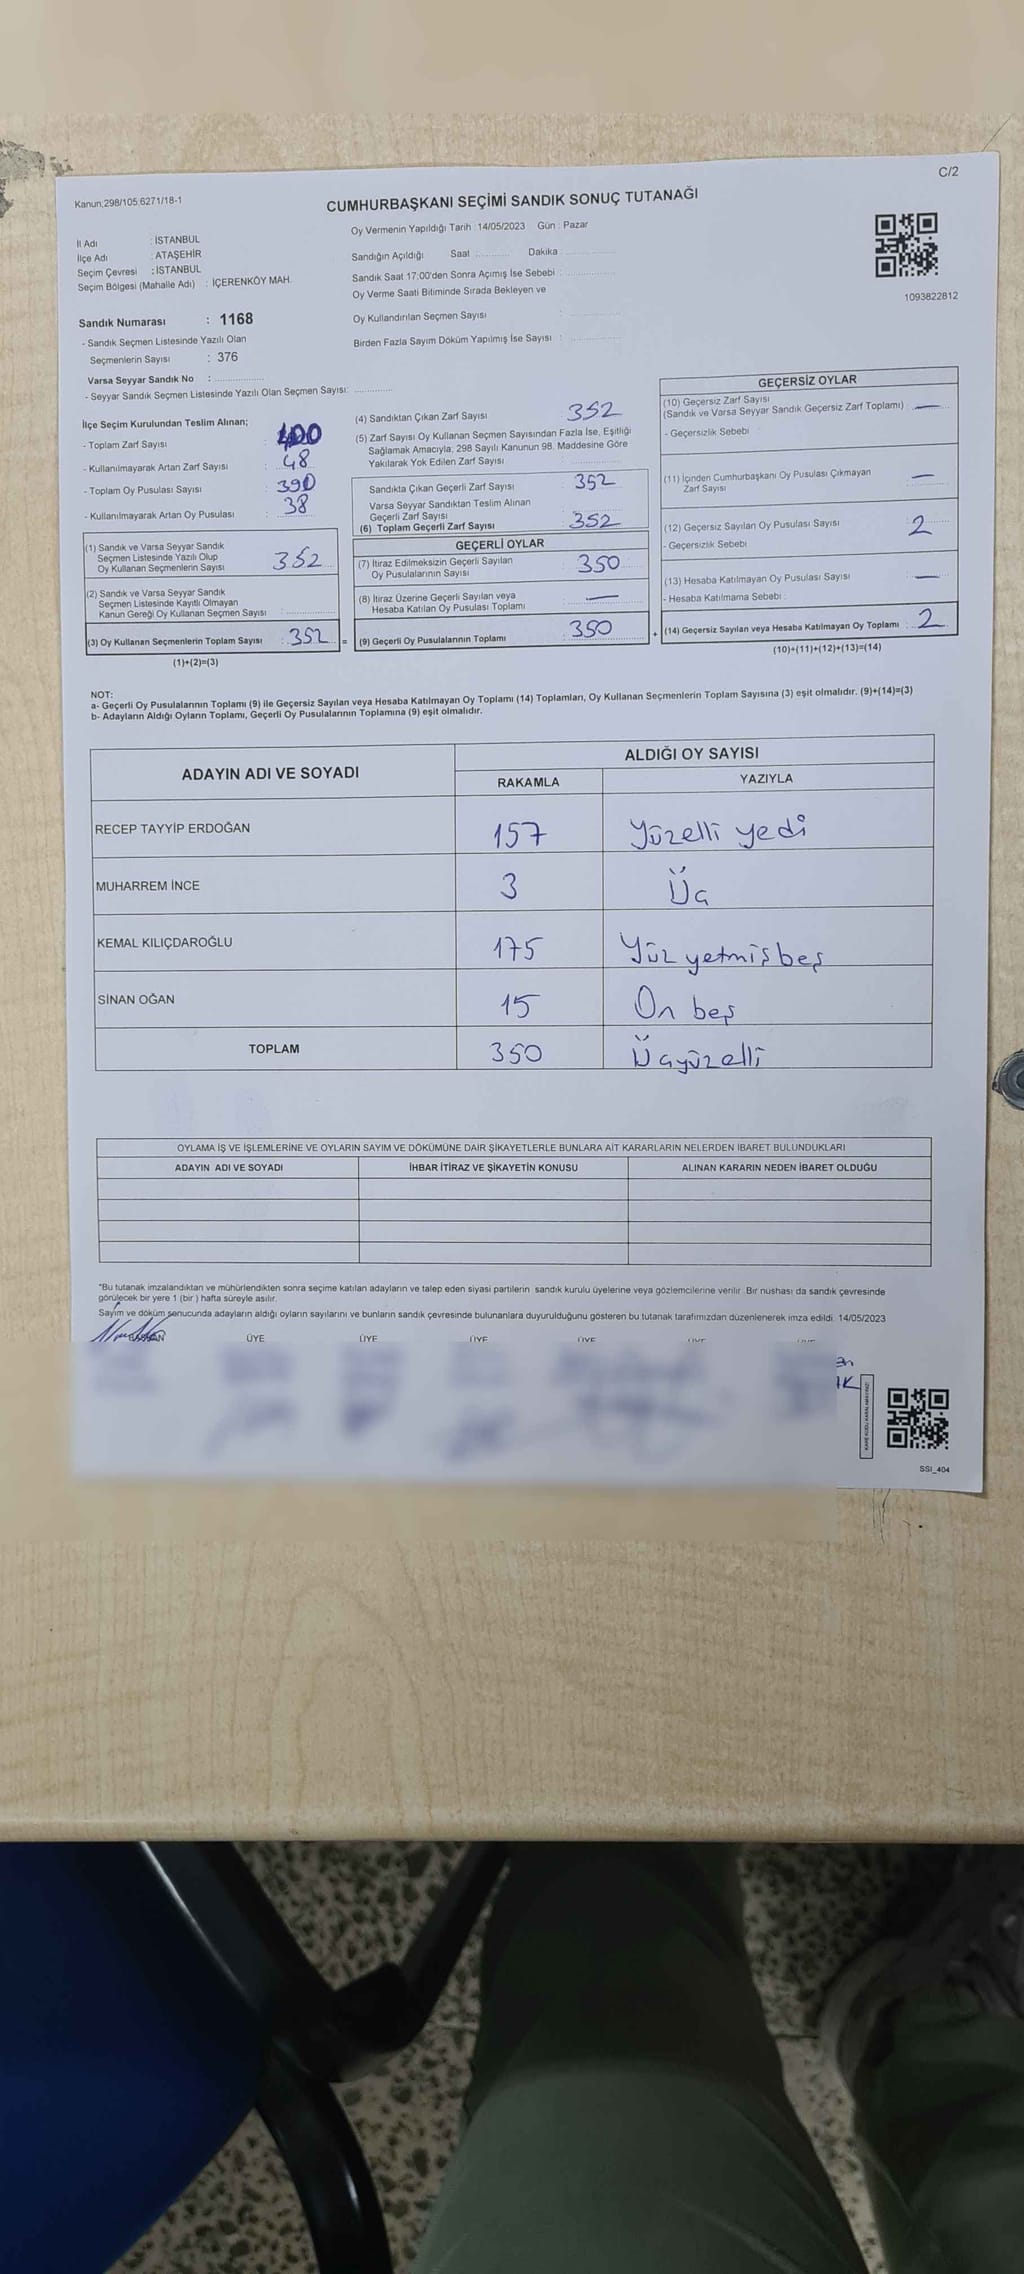 C/2
Kanun,298/105,6271/18-1
CUMHURBAŞKANI SEÇİMİ SANDIK SONUÇ TUTANAĞI
İl Adı : İSTANBUL
İlçe Adı : ATAŞEHİR
Seçim Çevresi : İSTANBUL
Seçim Bölgesi (Mahalle Adı) : İÇERENKÖY MAH.
Oy Vermenin Yapıldığı Tarih : 14/05/2023 Gün : Pazar
Sandığın Açıldığı Saat Dakika
Sandık Saat 17:00'den Sonra Açımış İse Sebebi
Oy Verme Saati Bitiminde Sırada Bekleyen ve
Oy Kullandırılan Seçmen Sayısı
Birden Fazla Sayım Döküm Yapılmış İse Sayısı
1093822812
Sandık Numarası : 1168
- Sandık Seçmen Listesinde Yazılı Olan
Seçmenlerin Sayısı : 376
Varsa Seyyar Sandık No :
- Seyyar Sandık Seçmen Listesinde Yazılı Olan Seçmen Sayısı:
İlçe Seçim Kurulundan Teslim Alınan;
- Toplam Zarf Sayısı : 400
- Kullanılmayarak Artan Zarf Sayısı : 48
- Toplam Oy Pusulası Sayısı : 390
- Kullanılmayarak Artan Oy Pusulası : 38
(1) Sandık ve Varsa Seyyar Sandık
Seçmen Listesinde Yazılı Olup
Oy Kullanan Seçmenlerin Sayısı 352
(2) Sandık ve Varsa Seyyar Sandık
Seçmen Listesinde Kayıtlı Olmayan
Kanun Gereği Oy Kullanan Seçmen Sayısı :
(3) Oy Kullanan Seçmenlerin Toplam Sayısı : 352 =
(1)+(2)=(3)
(4) Sandıktan Çıkan Zarf Sayısı : 352
(5) Zarf Sayısı Oy Kullanan Seçmen Sayısından Fazla İse, Eşitliği
Sağlamak Amacıyla, 298 Sayılı Kanunun 98. Maddesine Göre
Yakılarak Yok Edilen Zarf Sayısı
Sandıkta Çıkan Geçerli Zarf Sayısı : 352
Varsa Seyyar Sandıktan Teslim Alınan
Geçerli Zarf Sayısı
(6) Toplam Geçerli Zarf Sayısı : 352
GEÇERLİ OYLAR
(7) İtiraz Edilmeksizin Geçerli Sayılan
Oy Pusulalarının Sayısı : 350
(8) İtiraz Üzerine Geçerli Sayılan veya
Hesaba Katılan Oy Pusulası Toplamı : —
(9) Geçerli Oy Pusulalarının Toplamı : 350 +
GEÇERSİZ OYLAR
(10) Geçersiz Zarf Sayısı
(Sandık ve Varsa Seyyar Sandık Geçersiz Zarf Toplamı) : —
- Geçersizlik Sebebi :
(11) İçinden Cumhurbaşkanı Oy Pusulası Çıkmayan
Zarf Sayısı : —
(12) Geçersiz Sayılan Oy Pusulası Sayısı : 2
- Geçersizlik Sebebi :
(13) Hesaba Katılmayan Oy Pusulası Sayısı : —
- Hesaba Katılmama Sebebi :
(14) Geçersiz Sayılan veya Hesaba Katılmayan Oy Toplamı : 2
(10)+(11)+(12)+(13)=(14)
NOT:
a- Geçerli Oy Pusulalarının Toplamı (9) ile Geçersiz Sayılan veya Hesaba Katılmayan Oy Toplamı (14) Toplamları, Oy Kullanan Seçmenlerin Toplam Sayısına (3) eşit olmalıdır. (9)+(14)=(3)
b- Adayların Aldığı Oyların Toplamı, Geçerli Oy Pusulalarının Toplamına (9) eşit olmalıdır.
ADAYIN ADI VE SOYADI
ALDIĞI OY SAYISI
RAKAMLA YAZIYLA
RECEP TAYYİP ERDOĞAN 157 Yüzelli yedi
MUHARREM İNCE 3 Üç
KEMAL KILIÇDAROĞLU 175 Yüz yetmiş beş
SİNAN OĞAN 15 On beş
TOPLAM 350 Üçyüzelli
OYLAMA İŞ VE İŞLEMLERİNE VE OYLARIN SAYIM VE DÖKÜMÜNE DAİR ŞİKAYETLERLE BUNLARA AİT KARARLARIN NELERDEN İBARET BULUNDUKLARI
ADAYIN ADI VE SOYADI İHBAR İTİRAZ VE ŞİKAYETİN KONUSU ALINAN KARARIN NEDEN İBARET OLDUĞU
*Bu tutanak imzalandıktan ve mühürlendikten sonra seçime katılan adayların ve talep eden siyasi partilerin sandık kurulu üyelerine veya gözlemcilerine verilir. Bir nushası da sandık çevresinde
görülecek bir yere 1 (bir ) hafta süreyle asılır.
Sayım ve döküm sonucunda adayların aldığı oyların sayılarını ve bunların sandık çevresinde bulunanlara duyurulduğunu gösteren bu tutanak tarafımızdan düzenlenerek imza edildi. 14/05/2023
BAŞKAN ÜYE ÜYE ÜYE ÜYE ÜYE ÜYE
SSI_404